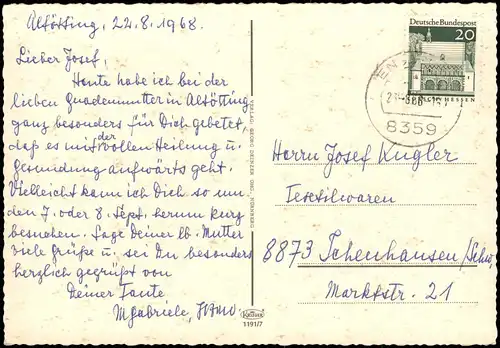 Altötting, 22.8.1968.
Lieber Josef,
Heute habe ich bei der
lieben Gnadenmutter in Altötting
ganz besonders für Dich gebetet,
daß es mit der vollen Heilung u.
Gesundung aufwärts geht.
Vielleicht kann ich Dich so um
den 7. oder 8. Sept. herum kurz
besuchen. Sage Deiner lb. Mutter
viele Grüße u. sei Du besonders
herzlich gegrüßt von
Deiner Tante
M. Gabriele,
Keller
1191/7
Deutsche Bundespost
20
LORSCH/HESSEN
8359
Herrn Josef Kugler
Textilwaren
8873 Ichenhausen/Schw.
Marktstr. 21